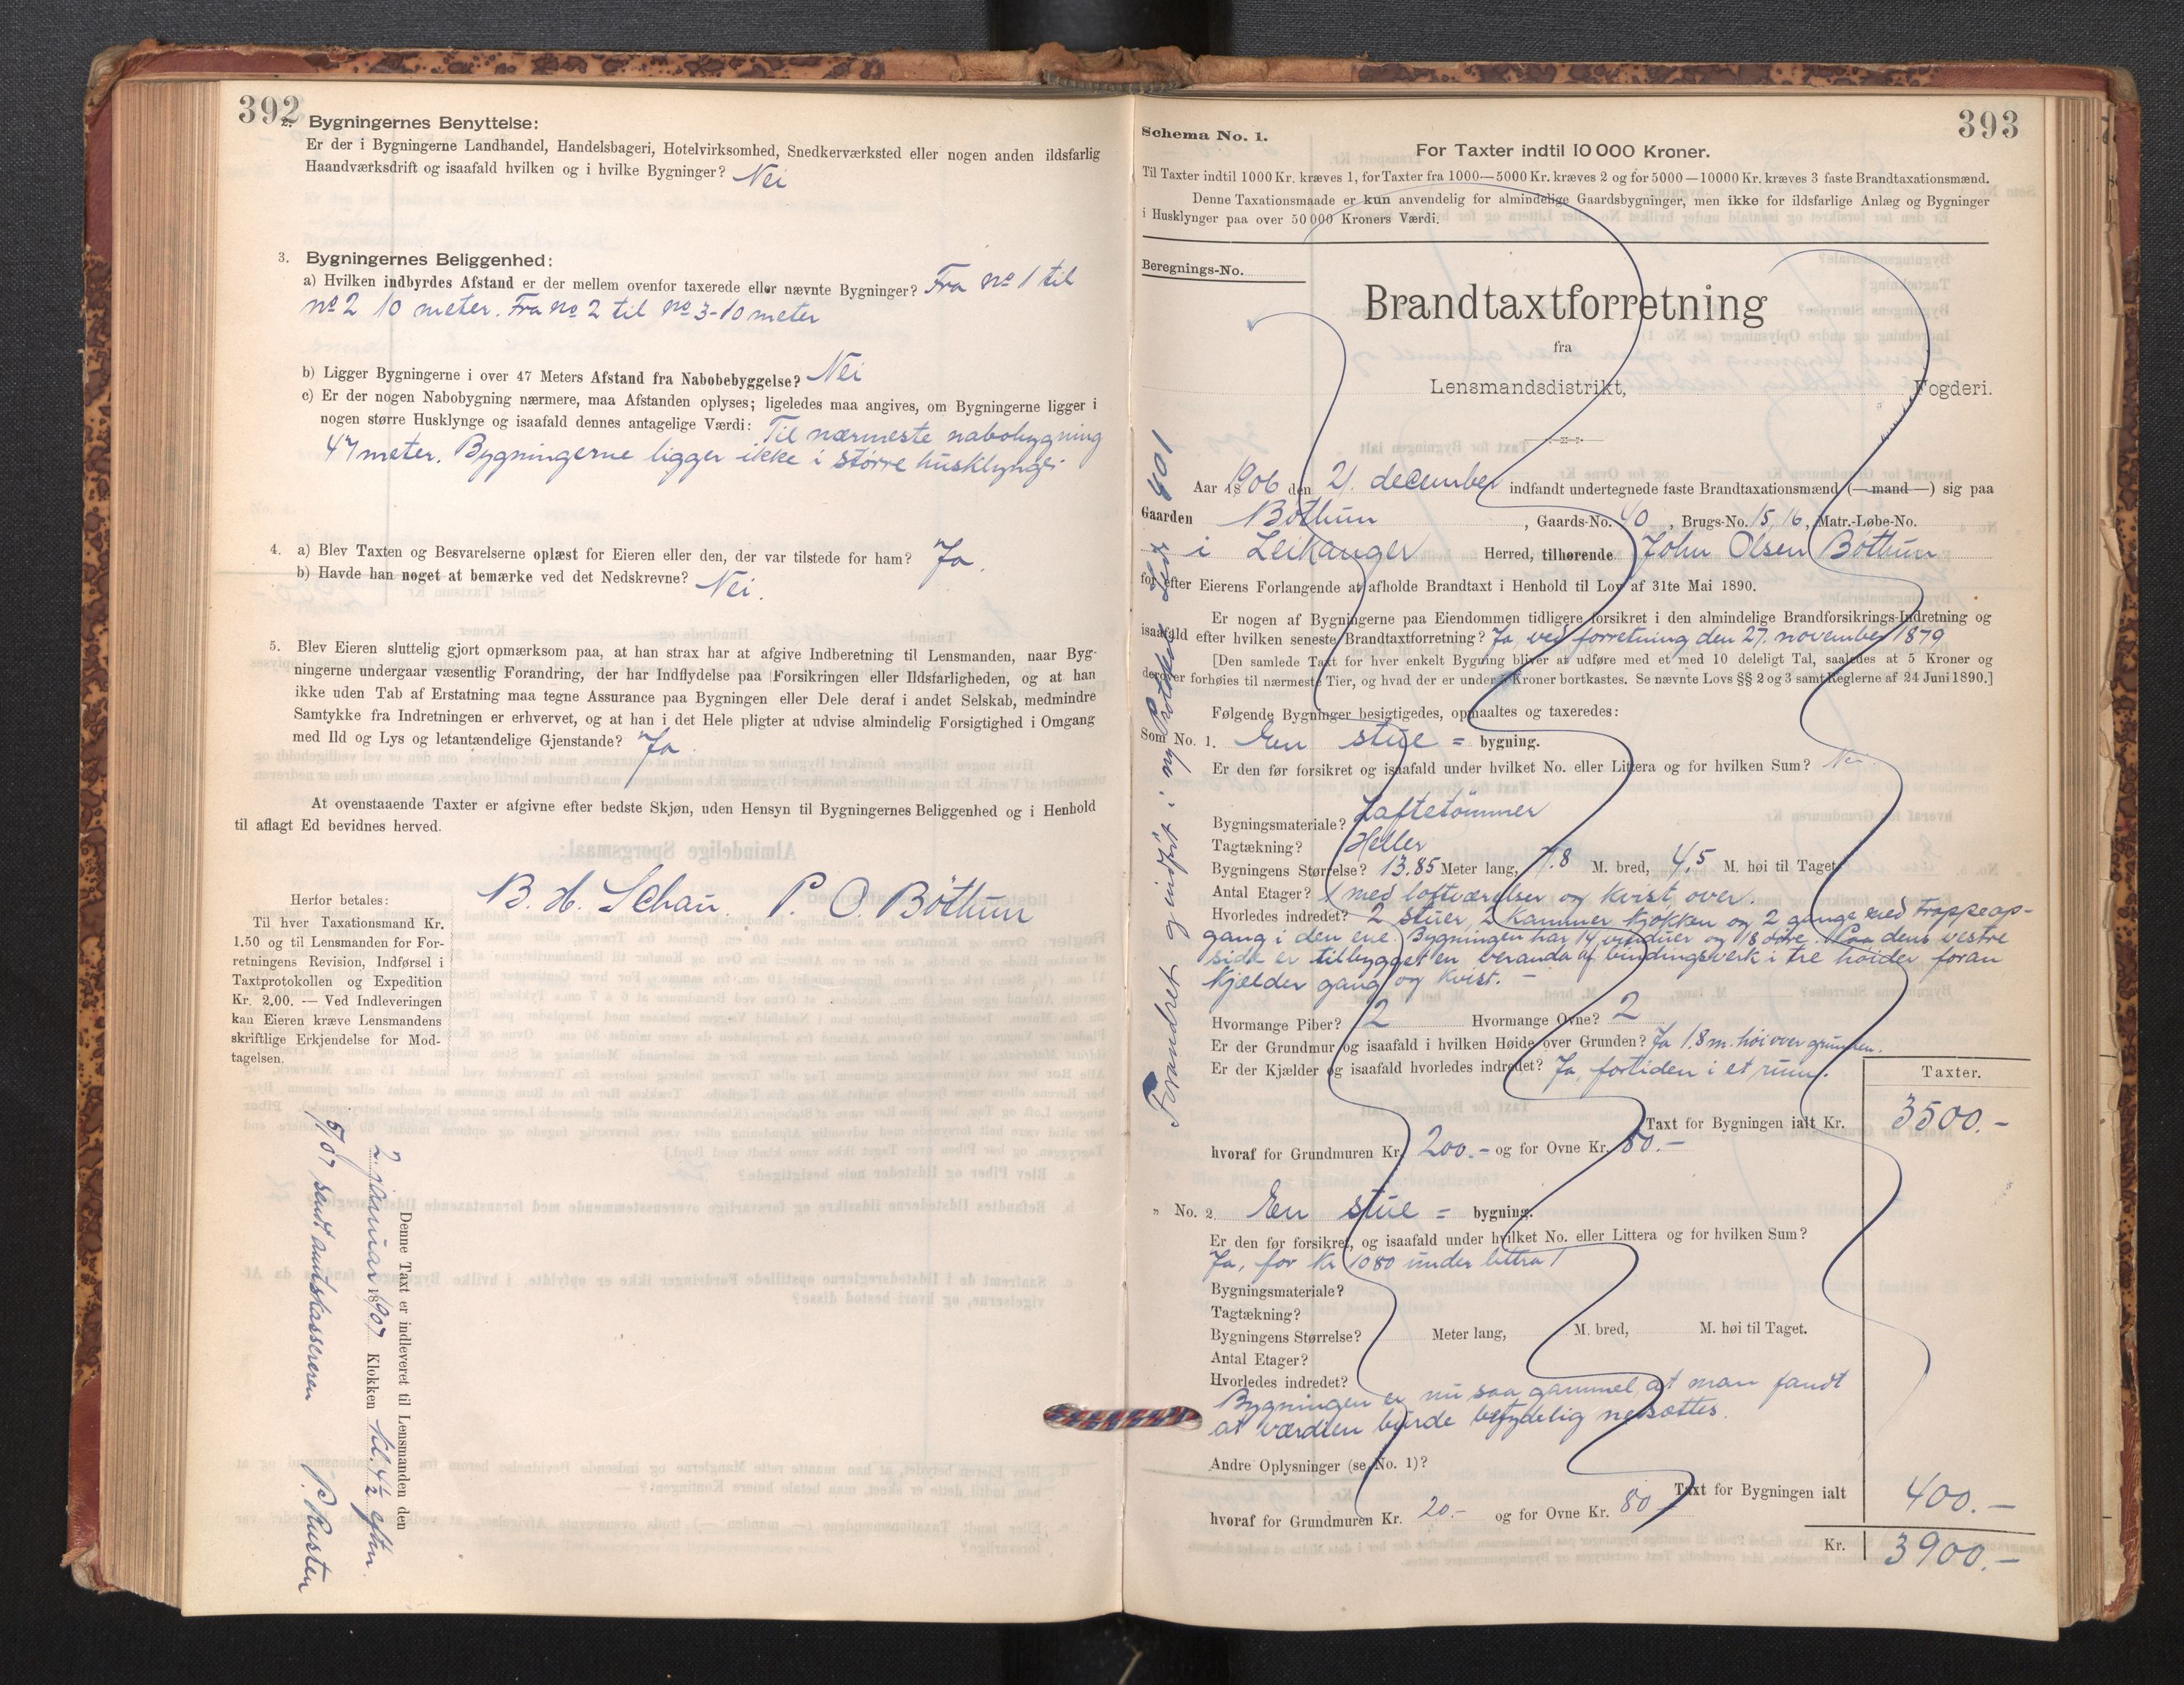 392
2. Bygningernes Benyttelse:
Er der i Bygningerne Landhandel, Handelsbageri, Hotelvirksomhed, Snedkerværksted eller nogen anden ildsfarlig
Haandværksdrift og isaafald hvilken og i hvilke Bygninger? Nei
3. Bygningernes Beliggenhed:
a) Hvilken indbyrdes Afstand er der mellem ovenfor taxerede eller nævnte Bygninger? Fra no 1 til
no 2 10 meter. Fra no 2 til no 3 - 10 meter
b) Ligger Bygningerne i over 47 Meters Afstand fra Nabobebyggelse? Nei
c) Er der nogen Nabobygning nærmere, maa Afstanden oplyses; ligeledes maa angives, om Bygningerne ligger i
nogen større Husklynge og isaafald dennes antagelige Værdi: Til nærmeste nabobygning
47 meter. Bygningerne ligger ikke i större husklynge.
4. a) Blev Taxten og Besvarelserne oplæst for Eieren eller den, der var tilstede for ham? Ja.
b) Havde han noget at bemærke ved det Nedskrevne? Nei.
5. Blev Eieren sluttelig gjort opmærksom paa, at han strax har at afgive Indberetning til Lensmanden, naar Byg-
ningerne undergaar væsentlig Forandring, der har Indflydelse paa Forsikringen eller Ildsfarligheden, og at han
ikke uden Tab af Erstatning maa tegne Assurance paa Bygningen eller Dele deraf i andet Selskab, medmindre
Samtykke fra Indretningen er erhvervet, og at han i det Hele pligter at udvise almindelig Forsigtighed i Omgang
med Ild og Lys og letantændelige Gjenstande? Ja
At ovenstaaende Taxter er afgivne efter bedste Skjøn, uden Hensyn til Bygningernes Beliggenhed og i Henhold
til aflagt Ed bevidnes herved.
B. H. Schau. P. O. Böthun
Herfor betales:
Til hver Taxationsmand Kr.
1.50 og til Lensmanden for For-
retningens Revision, Indførsel i
Taxtprotokollen og Expedition
Kr. 2,00. — Ved Indleveringen
kan Eieren kræve Lensmandens
skriftlige Erkjendelse for Mod-
tagelsen.
Denne Taxt er indleveret til Lensmanden den
2 januar 1907 Klokken kl. 4½ eftm.
5/1 07 sendt amtskassereren P. Husten
393
Schema No. 1.
For Taxter indtil 10 000 Kroner.
Til Taxter indtil 1000 Kr. kræves 1, for Taxter fra 1000—5000 Kr. kræves 2 og for 5000—10000 Kr. kræves 3 faste Brandtaxationsmænd.
Denne Taxationsmaade er kun anvendelig for almindelige Gaardsbygninger, men ikke for ildsfarlige Anlæg og Bygninger
i Husklynger paa over 50 000 Kroners Værdi.
Beregnings-No.
Brandtaxtforretning
fra
Lensmandsdistrikt, Fogderi.
Aar 1906 den 21. december indfandt undertegnede faste Brandtaxationsmænd (—mand—) sig paa
Gaarden Bothun, Gaards-No. 40, Brugs-No. 15, 16, Matr.-Løbe-No.
i Leikanger Herred, tilhørende John Olsen Bothun
for efter Eierens Forlangende at afholde Brandtaxt i Henhold til Lov af 31te Mai 1890.
Er nogen af Bygningerne paa Eiendommen tidligere forsikret i den almindelige Brandforsikrings-Indretning og
isaafald efter hvilken seneste Brandtaxtforretning? Ja ved forretning den 27. november 1879
[Den samlede Taxt for hver enkelt Bygning bliver at udføre med et med 10 deleligt Tal, saaledes at 5 Kroner og
derover forhøies til nærmeste Tier, og hvad der er under 5 Kroner bortkastes. Se nævnte Lovs §§ 2 og 3 samt Reglerne af 24 Juni 1890.]
Følgende Bygninger besigtigedes, opmaaltes og taxeredes:
Som No. 1. En stue = bygning.
Er den før forsikret og isaafald under hvilket No. eller Littera og for hvilken Sum? Nei
Bygningsmateriale? Laftetömmer
Tagtækning? Heller
Bygningens Størrelse? 13.85 Meter lang, 7.8 M. bred, 4,5 M. høi til Taget.
Antal Etager? 1 med loftværelser og kvist over.
Hvorledes indredet? 2 stuer, 2 kammer kjökken og 2 gange med trappeop-
gang i den ene. Bygningen har 14 vinduer og 18 döre. Paa dens vestre
side er tilbygget en veranda af bindingsverk i tre höider foran
kjælder gang og kvist. –
Hvormange Piber? 2 Hvormange Ovne? 2
Er der Grundmur og isaafald i hvilken Høide over Grunden? Ja 1.8 m. höi over grunden.
Er der Kjælder og isaafald hvorledes indredet? Ja, fortiden i et rum.
Taxter.
Taxt for Bygningen ialt Kr. 3500.-
hvoraf for Grundmuren Kr. 200.- og for Ovne Kr. 80.-
„ No. 2 En stue = bygning.
Er den før forsikret, og isaafald under hvilket No. eller Littera og for hvilken Sum?
Ja, for Kr 1080 under littra 1
Bygningsmateriale?
Tagtækning?
Bygningens Størrelse? Meter lang, M. bred, M. høi til Taget.
Antal Etager?
Hvorledes indredet?
Bygningen er nu saa gammel, at man fandt
at værdien burde betydelig nedsættes.
Andre Oplysninger (se No. 1)?
Taxt for Bygningen ialt 400.-
hvoraf for Grundmuren Kr. 20.- og for Ovne Kr. 80
Kr. 3900.-
Forandret og indført i ny Protokol